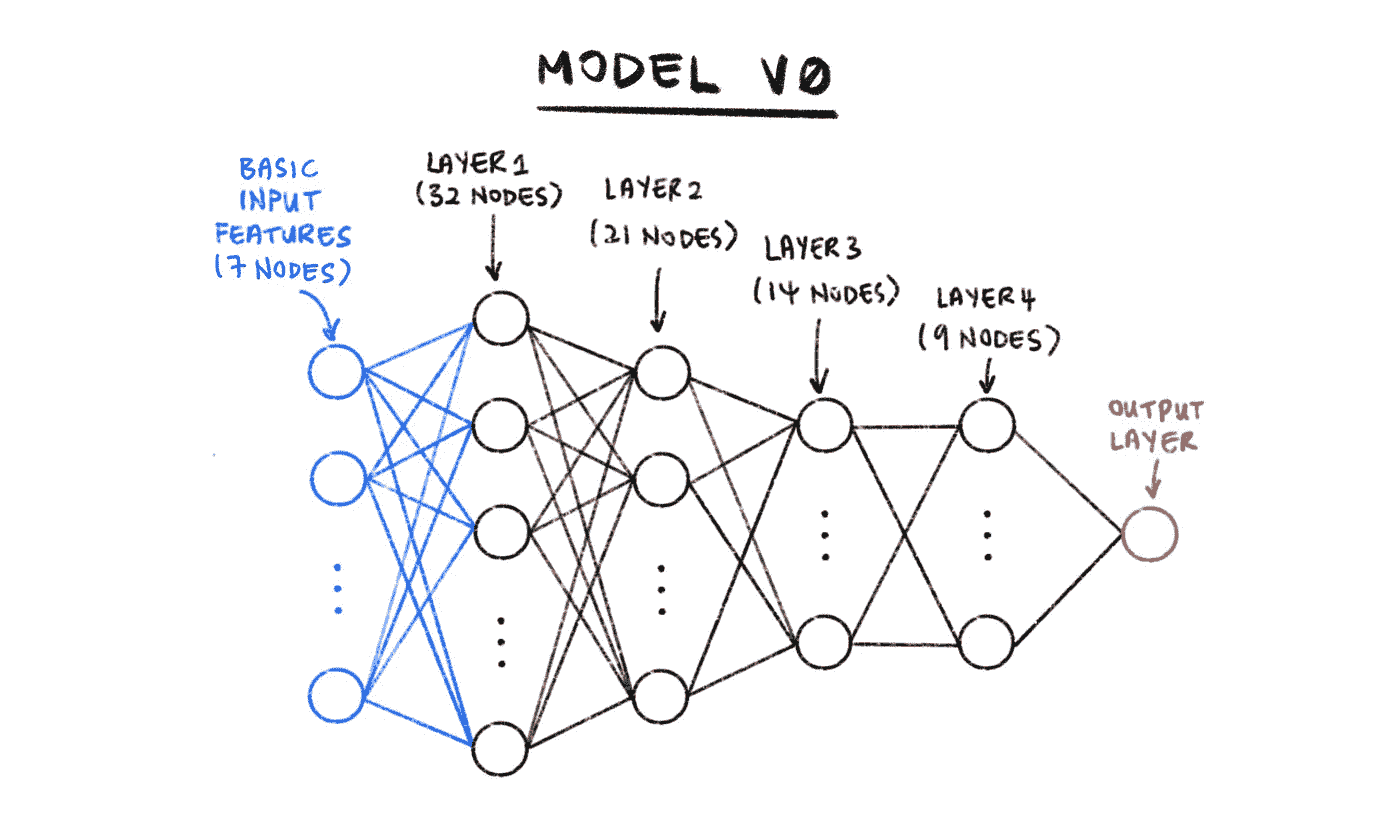 MODEL VØ
BASIC
INPUT
FEATURES
(7 NODES)
LAYER 1
(32 NODES)
LAYER 2
(21 NODES)
LAYER 3
(14 NODES)
LAYER 4
(9 NODES)
OUTPUT
LAYER